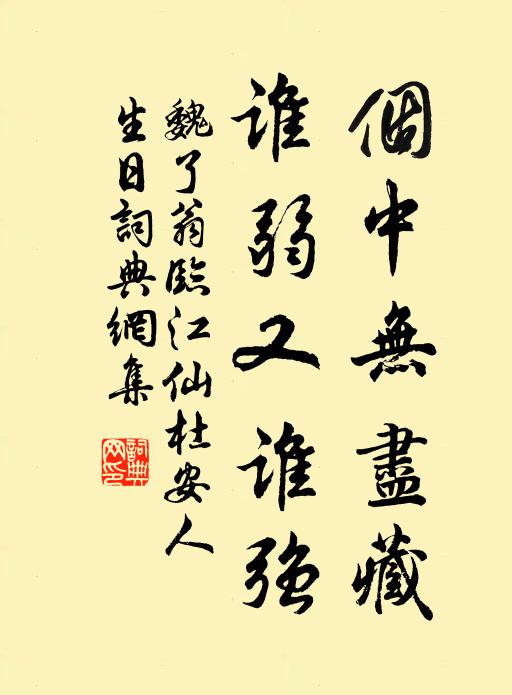 個中無盡藏
誰弱又誰強
魏了翁臨江仙杜安人
生日詞典網集
詞典網印